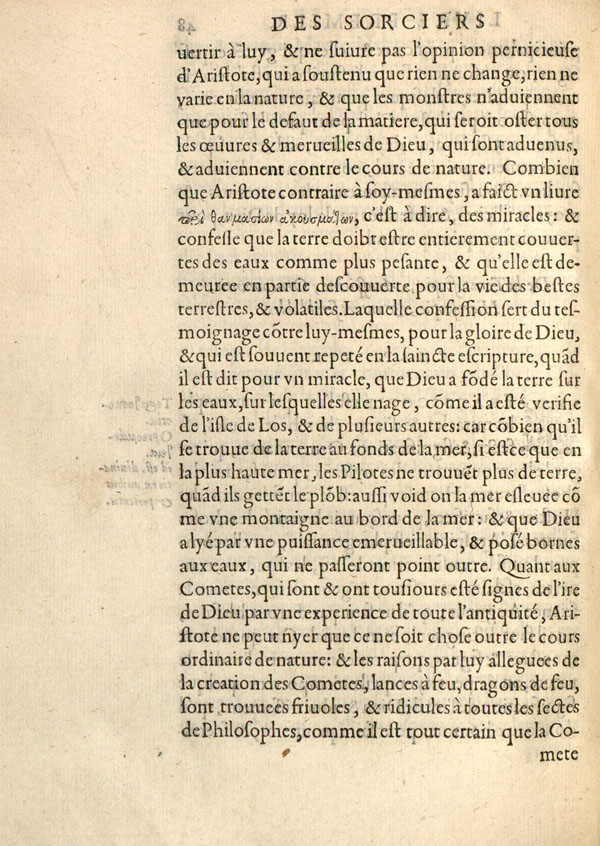 DES SORCIERS
uertir à luy, & ne ſuiure pas l'opinion pernicieuſe
d'Ariſtote, qui a ſouſtenu que rien ne change, rien ne
varie en la nature, & que les monſtres n'aduiennent
que pour le defaut de la matiere, qui ſeroit oſter tous
les œuures & merueilles de Dieu, qui ſont aduenus,
& aduiennent contre le cours de nature. Combien
que Ariſtote contraire à ſoy-meſmes, a faict vn liure
περὶ θαυμασίων ἀκουσμάτων, c'eſt à dire, des miracles: &
confeſſe que la terre doibt eſtre entierement couuer-
tes des eaux comme plus peſante, & qu'elle eſt de-
meuree en partie deſcouuerte pour la vie des beſtes
terreſtres, & volatiles. Laquelle confeſſion ſert du teſ-
moignage cõtre luy-meſmes, pour la gloire de Dieu,
& qui eſt ſouuent repeté en la ſaincte eſcripture, quãd
il eſt dit pour vn miracle, que Dieu a fõdé la terre ſur
les eaux, ſur leſquelles elle nage, cõme il a eſté verifie
de l'iſle de Los, & de pluſieurs autres: car cõbien qu'il
ſe trouue de la terre au fonds de la mer, ſi eſtce que en
la plus haute mer, les Pilotes ne trouuẽt plus de terre,
quãd ils gettẽt le plõb: auſſi void on la mer eſleuée cõ
me vne montaigne au bord de la mer: & que Dieu
a lyé par vne puiſſance emerueillable, & poſé bornes
aux eaux, qui ne paſſeront point outre. Quant aux
Cometes, qui ſont & ont touſiours eſté ſignes de l'ire
de Dieu par vne experience de toute l'antiquité, Ari-
ſtote ne peut nyer que ce ne ſoit choſe outre le cours
ordinaire de nature: & les raiſons par luy alleguees de
la creation des Cometes, lances à feu, dragons de feu,
ſont trouuees friuoles, & ridicules à toutes les ſectes
de Philoſophes, comme il eſt tout certain que la Co-
mete